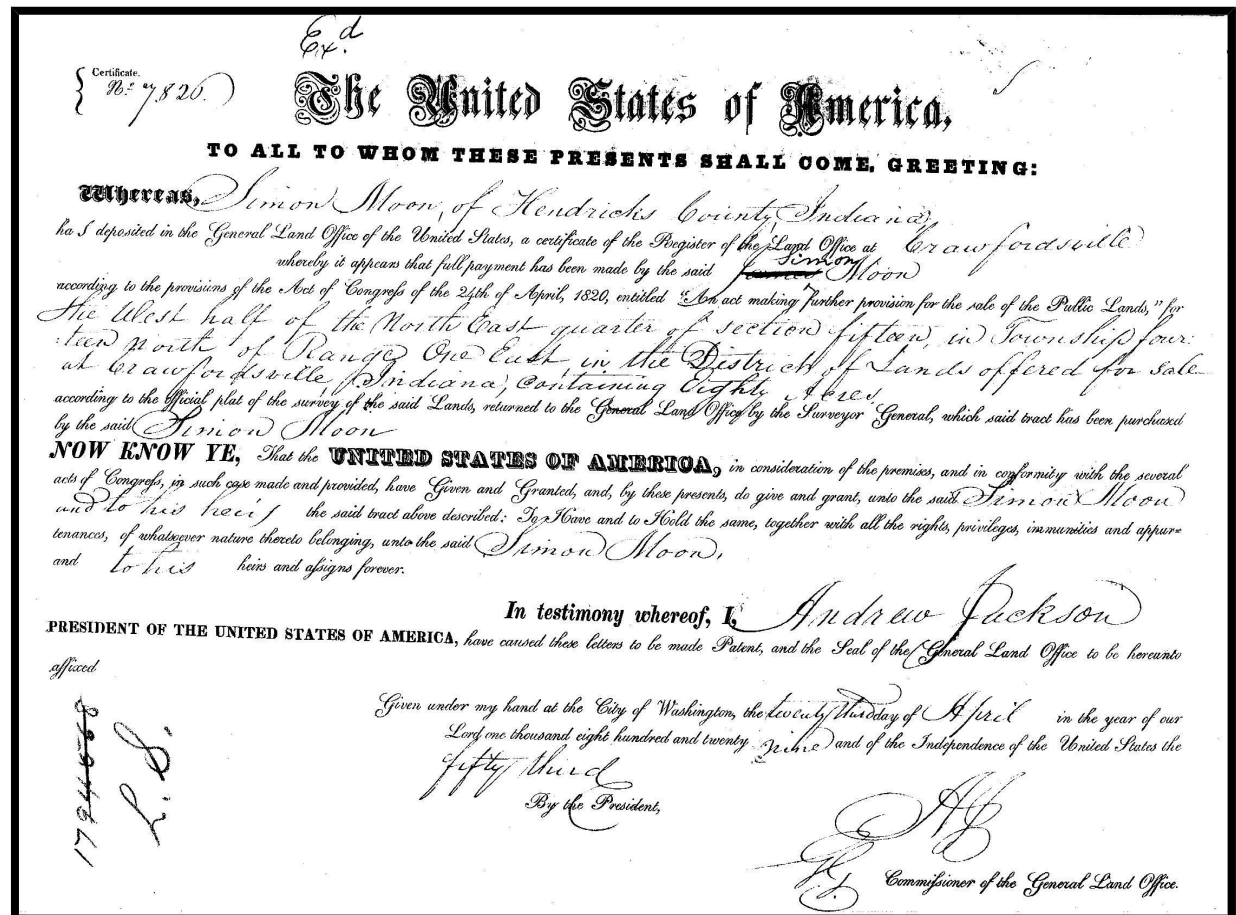 Ex.d
Certificate.
No. 7826.
The United States of America,
TO ALL TO WHOM THESE PRESENTS SHALL COME, GREETING:
Whereas, Simon Moon, of Hendricks County, Indiana,
has deposited in the General Land Office of the United States, a certificate of the Register of the Land Office at Crawfordsville
Simon
whereby it appears that full payment has been made by the said James Moon
according to the provisions of the Act of Congress of the 24th of April, 1820, entitled "An act making further provision for the sale of the Public Lands," for
the West half of the North East quarter of section fifteen, in Township four:
:teen north of Range One East, in the District of Lands offered for sale
at Crawfordsville, Indiana, Containing Eighty Acres,
according to the official plat of the survey of the said Lands, returned to the General Land Office by the Surveyor General, which said tract has been purchased
by the said Simon Moon
NOW KNOW YE, That the UNITED STATES OF AMERICA, in consideration of the premises, and in conformity with the several
acts of Congress, in such case made and provided, have Given and Granted, and, by these presents, do give and grant, unto the said Simon Moon
and to his heirs the said tract above described: To Have and to Hold the same, together with all the rights, privileges, immunities and appur-
tenances, of whatsoever nature thereto belonging, unto the said Simon Moon,
and to his heirs and assigns forever.
In testimony whereof, I, Andrew Jackson
PRESIDENT OF THE UNITED STATES OF AMERICA, have caused these letters to be made Patent, and the Seal of the General Land Office to be hereunto
affixed
Given under my hand at the City of Washington, the twenty third day of April in the year of our
Lord one thousand eight hundred and twenty nine and of the Independence of the United States the
fifty third
By the President,
L. S.
Commissioner of the General Land Office.